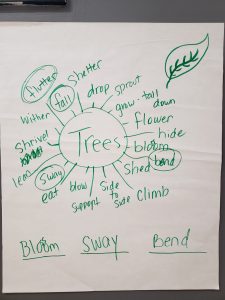 flutter
shelter
fall
drop
sprout
Wither
grow - tall
down
flower
Shrivel
Trees
hide
bloom
lean
Sway
Shed
bend
eat
blow
Side
to
side
Climb
support
Bloom
Sway
Bend